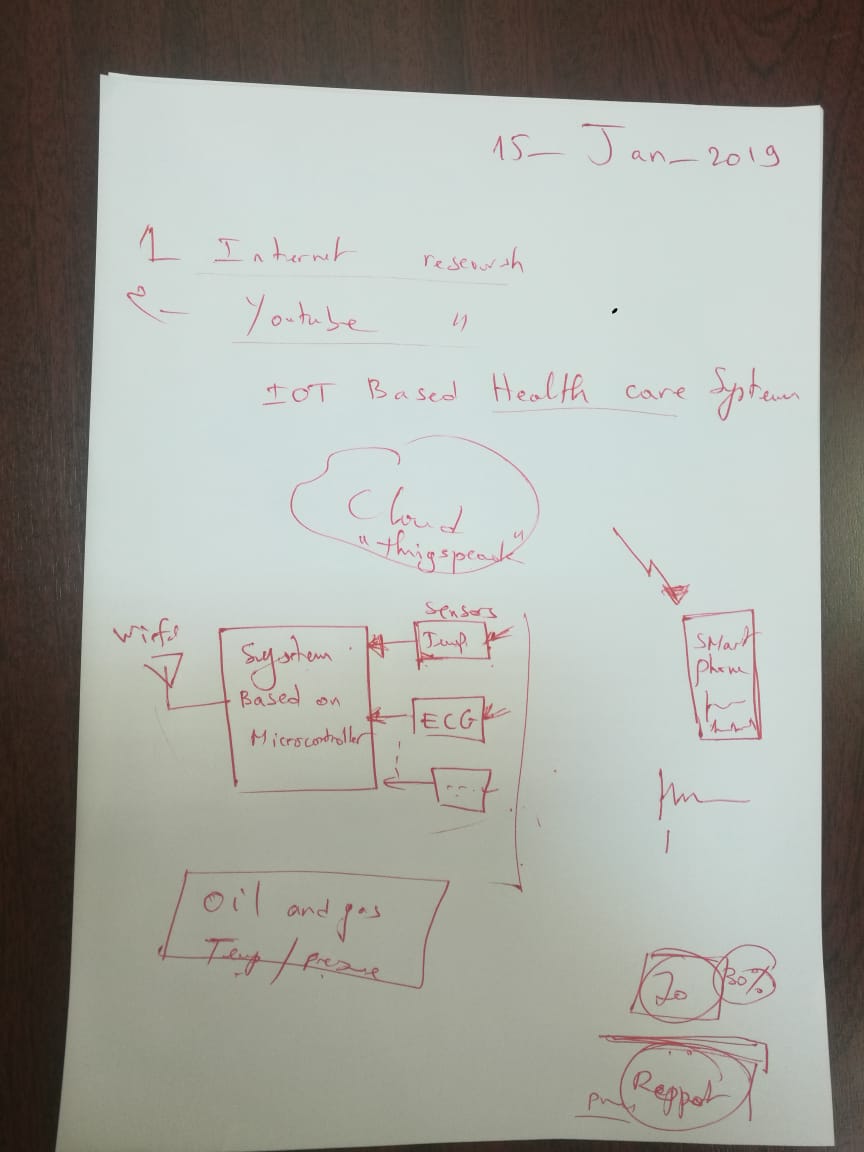 15- Jan-2019
1 Internet research
2- Youtube "
IOT Based Health care System
Cloud
"thigspeack"
Sensors
Wifi
System
Based on
Microcontroller
Temp.
ECG
...
Smart
phone
Oil and gas
Temp / presure
20 30%
Reppot